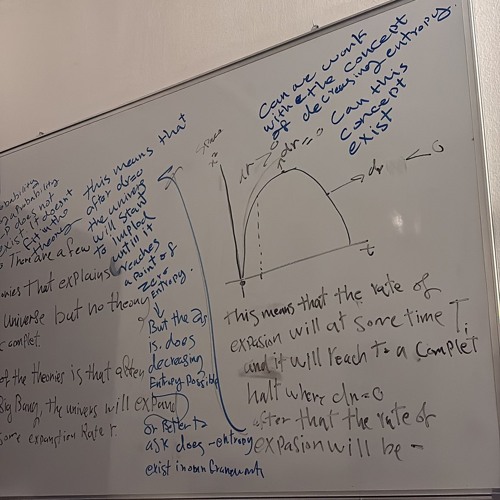 Can we work
with the concept
of decreasing entropy
Can this
concept
exist
dr=0
dr < 0
t
this means that
after dr=0
the univers
will start
to implod
until it
reaches
a point of
zero
Entropy.
↓
But the
is. does
decreasing
Entropy possible
or better to
ask does -entropy
exist in our framework
a probability
does not
exist it doesn't
fit in the
theory
There are a few
onies that explains
Universe but no theory
complet.
of the theories is that after
Big Bang, the univers will expand
some expantion Rate r.
this means that the rate of
expasion will at some time T,
and it will reach to a complet
halt where dr=0
after that the rate of
expasion will be -